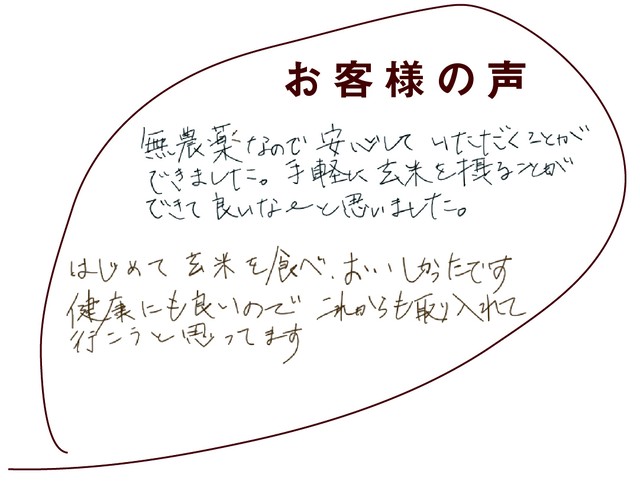 お客様の声
無農薬なので安心して いただくことが
できました。手軽に玄米を摂ることが
できて良いなぁと思いました。
はじめて玄米を食べ、おいしかったです
健康にも良いので これからも取り入れて
行こうと思ってます